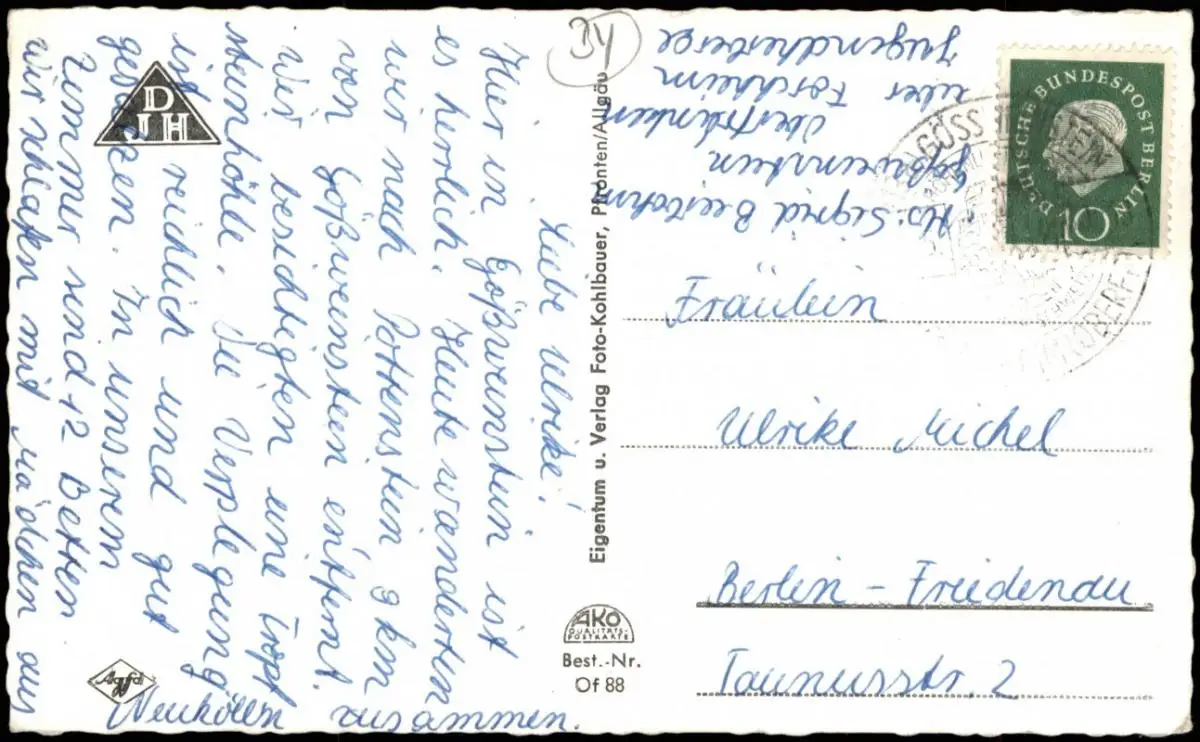 Liebe Ulrike!
Hier in Gößweinstein ist
es herrlich. Heute wanderten
wir nach Pottenstein 9 km
von Gößweinstein entfernt.
Wir besichtigten eine Tropf
steinhöhle. Die Verpflegung
ist reichlich und gut
gesalzen. In unserem
Zimmer sind 12 Betten
wir schlafen mit Mädchen aus
Neukölln zusammen.
DJH
Agfa
Eigentum u. Verlag Foto-Kohlbauer, Pfronten/Allgäu
AKO
QUALITÄTS-
POSTKARTE
Best.-Nr.
Of 88
34
Abs: Sigrid
Gößweinstein
Oberfranken
über Forchheim
Jugendherberge
DEUTSCHE BUNDESPOST BERLIN
10
Fräulein
Ulrike Michel
Berlin - Friedenau
Taunusstr. 2